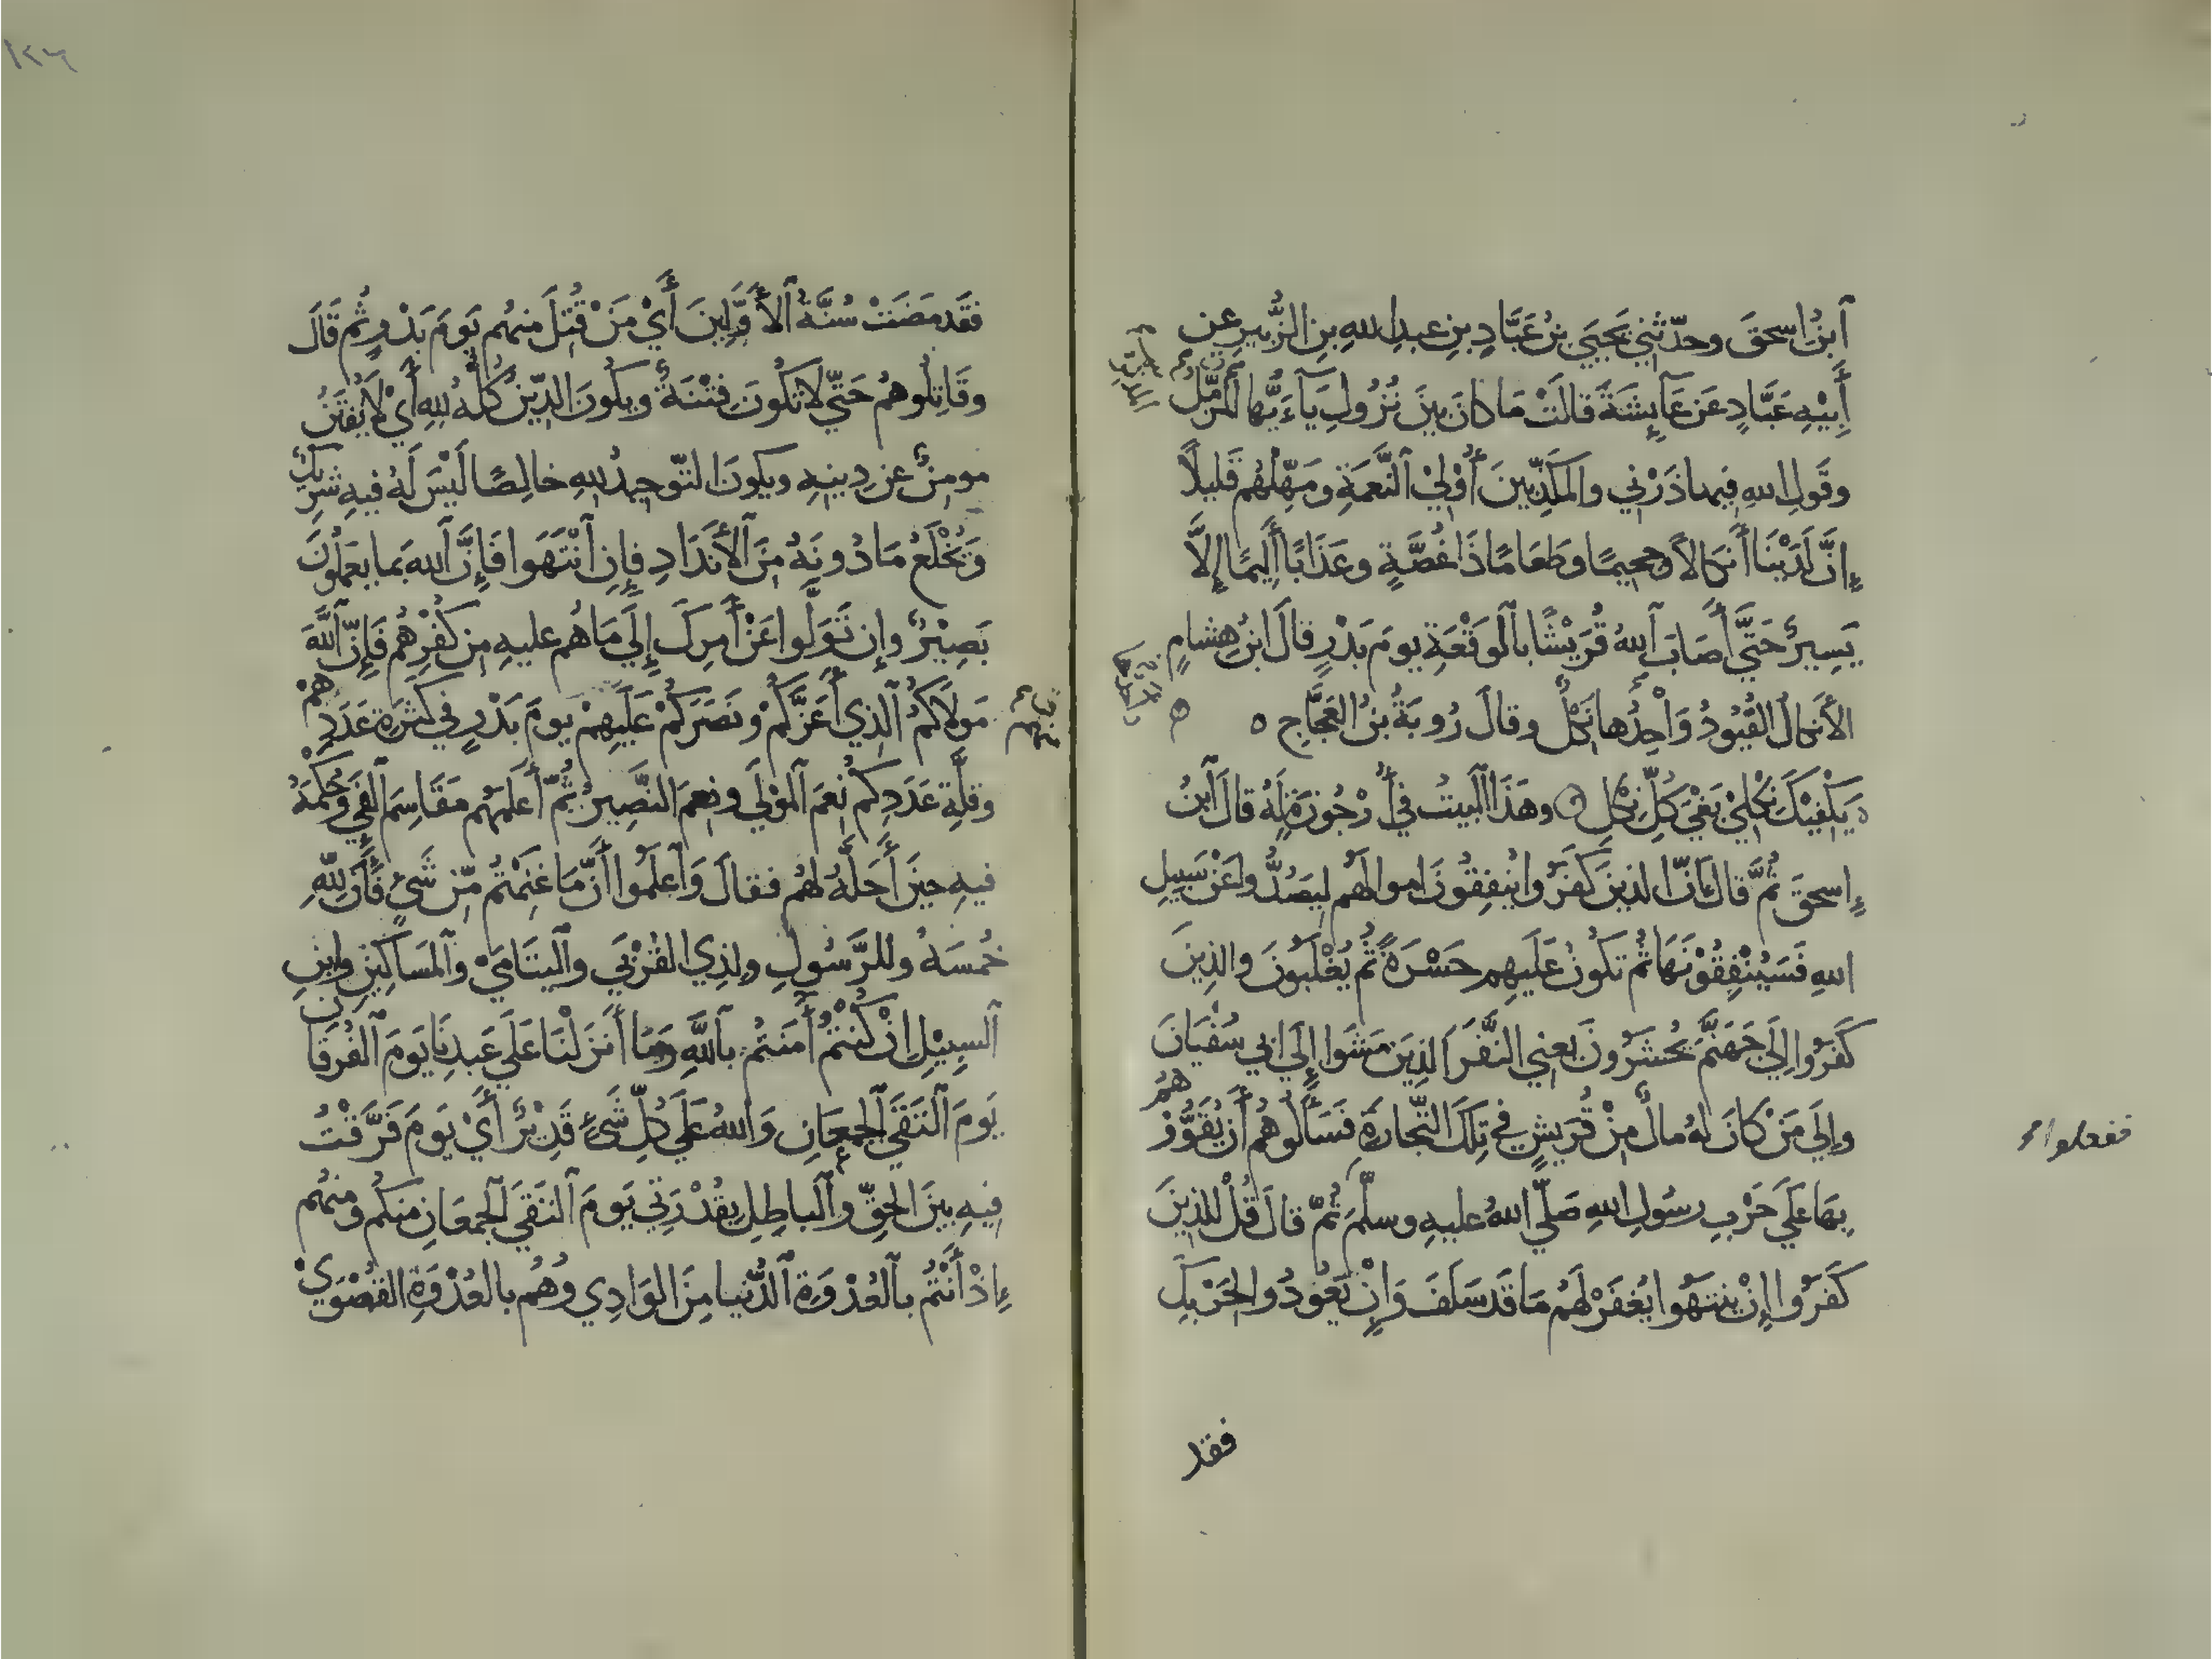 ٱبنُ اسحقَ وحدّثني يَحييَ بنُ عَبَّادِ بنِ عبدِ اللهِ بنِ الزُّبيرِ عن
أَبِيْهِ عَبَّادٍ عَن عَآيِشَةَ قالَتْ مَا كانَ بينَ نُزُولِ يَآءَيُّها المزَّمِّلُ
وقَولِ اللهِ فيها ذَرْني والمكَذِّبينَ أُوْلِيْ ٱلنَّعمَةِ ومَهِّلْهُم قَليلاً
إنَّ لَدَيْنَا أَنكالاً وجحيمًا وطَعَامًا ذَا غُصَّةٍ وعَذَابًا أَلِيمًا إلَّا
يَسِيرٌ حَتَّي أَصَابَ ٱللهُ قُرَيْشًا بالوَقْعَةِ يومَ بَدْرٍ قالَ ابنُ هِشامٍ
الأَنكالُ القُيُودُ وَاْحِدُها نَكْلٌ وقالَ رُوبَةُ بنُ العَجَّاجِ ه
ه يَكْفِيْكَ نِكْلِيْ بَغْيَ كُلِّ نِكْلِ وهَذَا البَيتُ في أُرْجُوزَةٍ لَهُ قالَ ٱبنُ
إسحقَ ثُمَّ قالَ إنّ الذينَ كَفَرُوا يُنفِقُونَ اموالَهُم لِيَصُدُّوا عَنْ سَبِيلِ
اللهِ فَسَيُنْفِقُوْنَهَا ثُم تَكونُ عَلَيهِم حَسْرَةً ثُم يُغْلَبُونَ والذِينَ
كَفَرُوا إلَيَ جَهَنَّمَ يُحْشَرُونَ يَعني النَّفَرَ الذِينَ مَشَوا إلَي ابي سُفْيَانَ
وإلَي مَنْ كَانَ لهُ مالٌ مِنْ قُرَيشٍ في تِلكَ التِّجارَةِ فَسَأَلُوهُم أَنْ يُقَوُّوْهُمْ
بِهَا عَلَي حَرْبِ رسُولِ اللهِ صَلّي اللهُ عليهِ وسلَّمَ ثُمّ قالَ قُلْ للذِينَ
كَفَرُوا إنْ يَنتَهُوا يُغفَرْ لَهُم مَا قَد سَلَفَ وَإنْ يَعُودُوا لحَرْبِكَ
ففعلوا
فقد
١٢٦
فقَد مَضَتْ سُنَّةُ ٱلأَوَّلِينَ أَيْ مَنْ قُتِلَ منهُم يَومَ بَدْرٍ ثُم قَالَ
وقَاتِلُوهُم حَتّي لا تَكُونَ فِتْنَةٌ ويَكُونَ الدِّينُ كُلُّهُ للهِ أَيْ لَا يُفتَنُ
مومِنٌ عن دِينهِ ويكونَ التّوحيدُ للهِ خالِصًا لَيْسَ لَهُ فيهِ شرِيكٌ
وَيُخْلَعُ مَا دُونَهُ مِنَ ٱلأَندَادِ فإنِ ٱنْتَهَوا فَإنَّ ٱللهَ بما يَعمَلُونَ
بَصِيْرٌ وإن تَوَلَّوا عَنْ أَمرِكَ إلَي مَا هُم عليهِ مِن كُفْرِهُم فَإنّ ٱللَّهَ
مَولَاكُمُ ٱلذِي أَعَزَّكُمْ ونَصَرَكُمْ عَلَيهِمْ يومَ بَدْرٍ في كَثرَةِ عَدَدِهمْ
وقلَّةِ عَدَدِكُم نِعمَ ٱلمَوْلَي ونِعمَ النَّصِيرُ ثُمّ أَعلَمَهُم مَقَاسِمَ ٱلفَيءِ وحُكْمَهُ
فيهِ حينَ أَحَلَّهُ لهُم فقالَ وَٱعلَمُوا أَنَّ مَا غَنِمْتُم مّن شَيءٍ فَأَنّ لِلّهِ
خُمسَهُ وللرَّسُولِ ولِذِي القُرْبَي وٱليتَامَيْ وٱلمَسَاكِينِ وابنِ
ٱلسبِيْلِ إنْ كُنْتُمْ أَمَنتُم بٱللَّهِ ومَا أَنزَلْنَا عَلَي عَبدِنَا يَومَ ٱلفُرقَانِ
يَومَ ٱلتَقَي ٱلجمعَانِ وَاللهُ عَلَي كُلِّ شَيءٍ قَدِيْرٌ أَيْ يَومَ فَرَّقْتُ
فِيهِ بينَ الحقِّ وٱلباطِلِ بِقُدْرَتي يَومَ ٱلتَقَي ٱلجمعَانِ مِنكُم ومِنهُم
إذْ أَنْتُم بٱلعُدْوَةِ ٱلدُّنيا مِنَ الوَادِي وَهُم بالعُدْوَةِ القُصْوَيْ